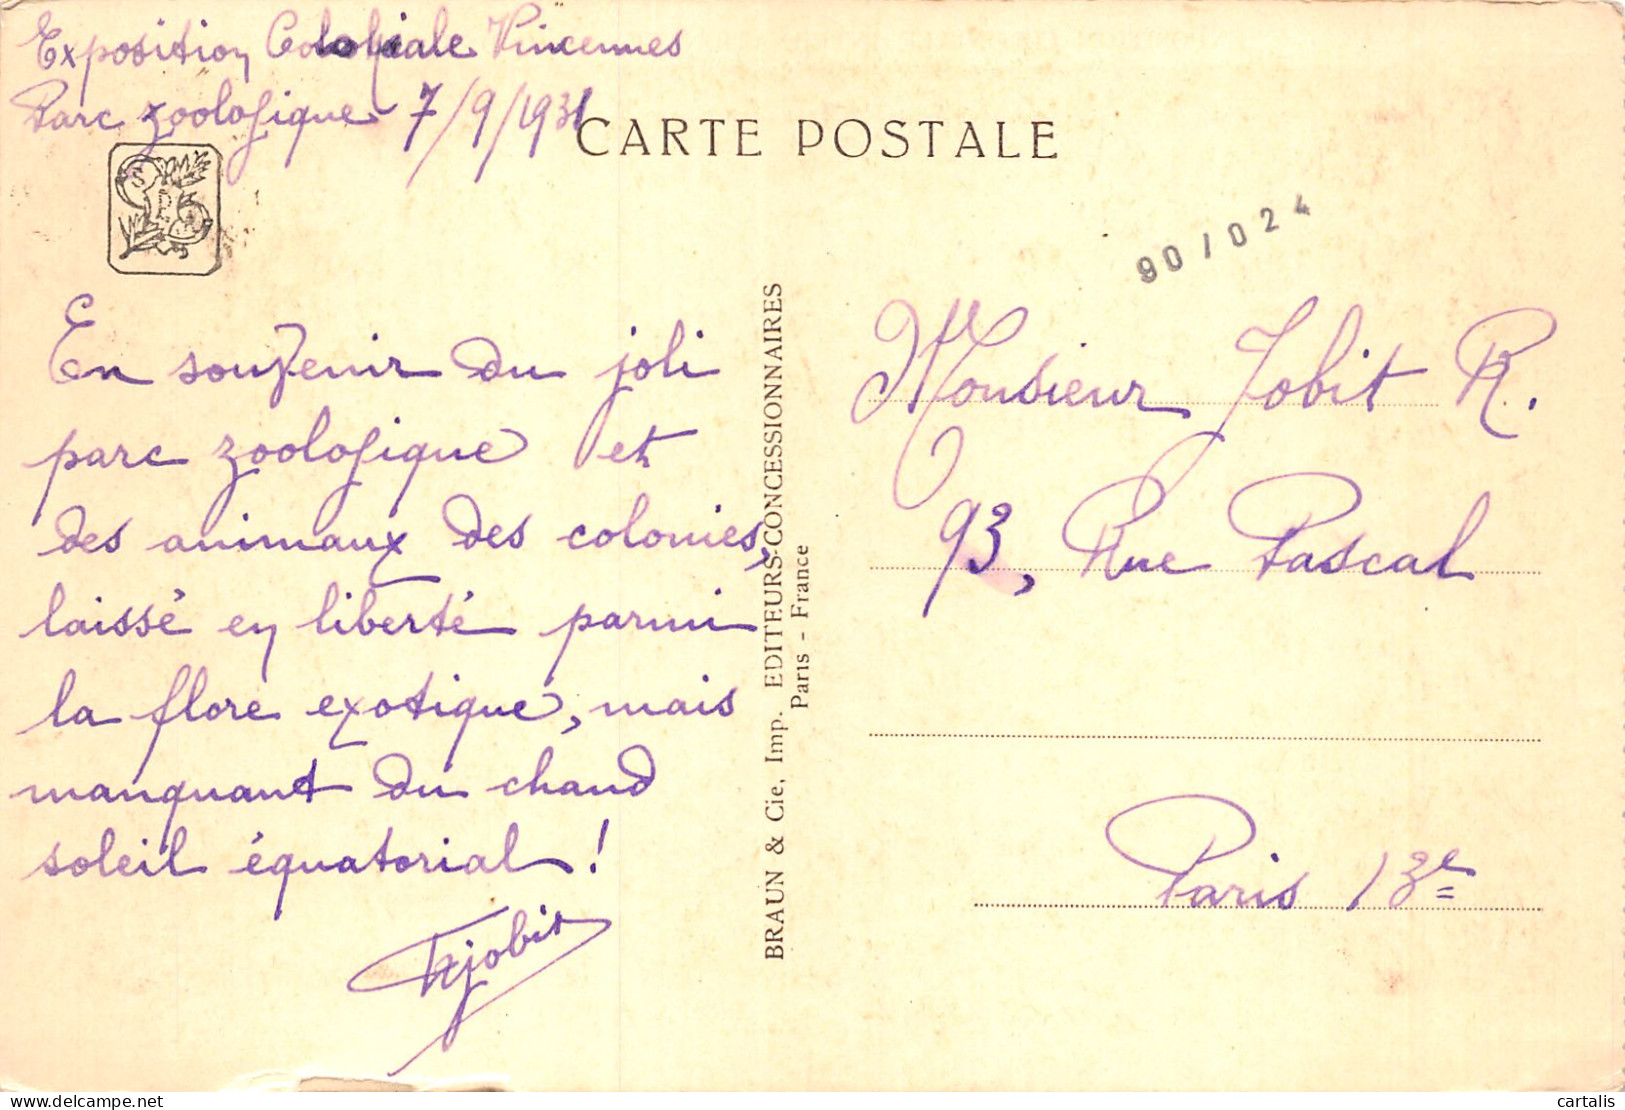 Exposition Coloniale Vincennes
Parc zoologique 7/9/1931
CARTE POSTALE
90/024
En souvenir du joli
parc zoologique et
des animaux des colonies,
laissé en liberté parmi
la flore exotique, mais
manquant du chaud
soleil équatorial !
Rjobit
BRAUN & Cie, Imp. EDITEURS-CONCESSIONNAIRES
Paris - France
Monsieur Jobit R.
93, Rue Pascal
Paris 13e
cartalis
delcampe.net